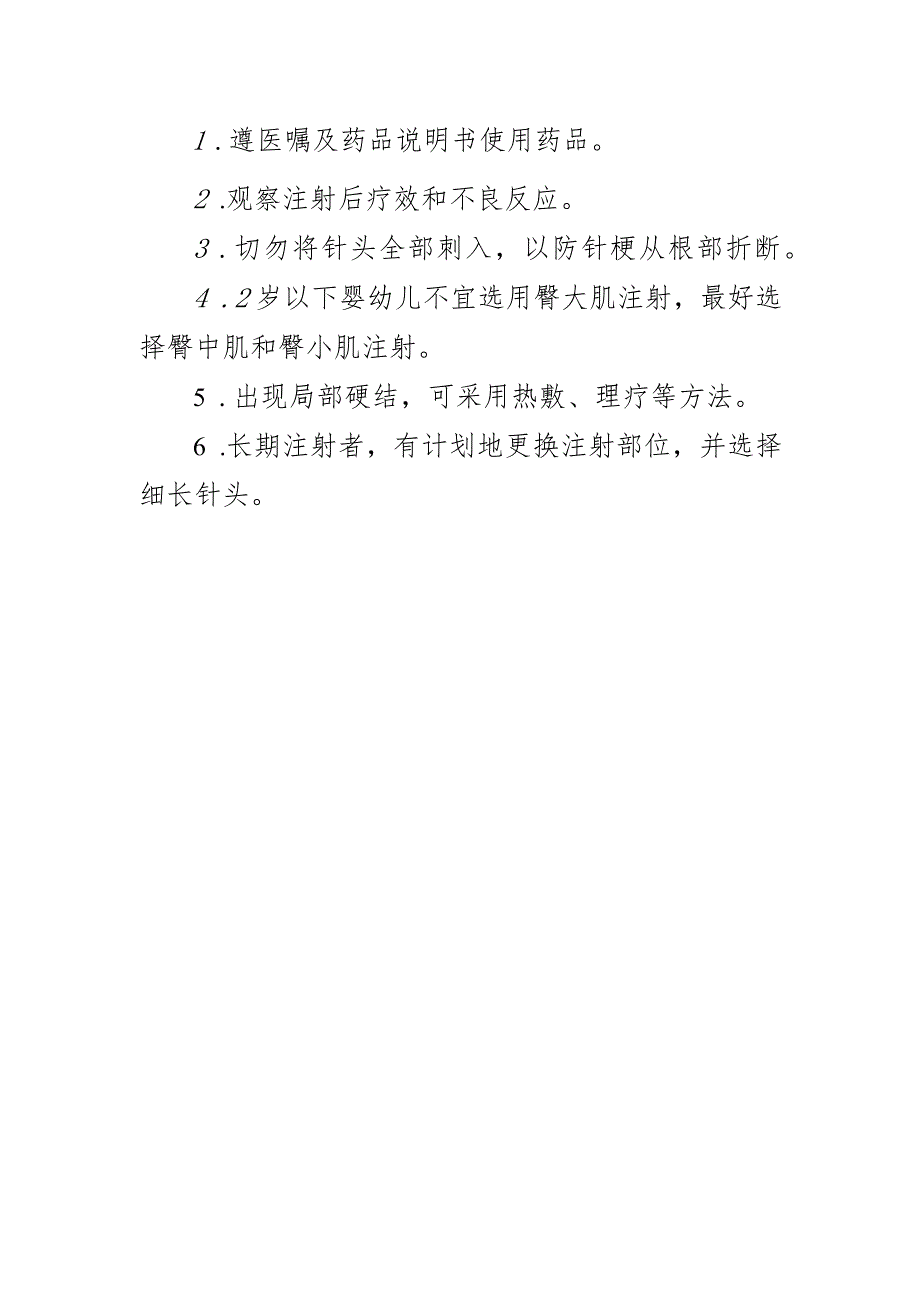 1.遵医嘱及药品说明书使用药品。
2.观察注射后疗效和不良反应。
3.切勿将针头全部刺入，以防针梗从根部折断。
4.2岁以下婴幼儿不宜选用臀大肌注射，最好选
择臀中肌和臀小肌注射。
5.出现局部硬结，可采用热敷、理疗等方法。
6.长期注射者，有计划地更换注射部位，并选择
细长针头。